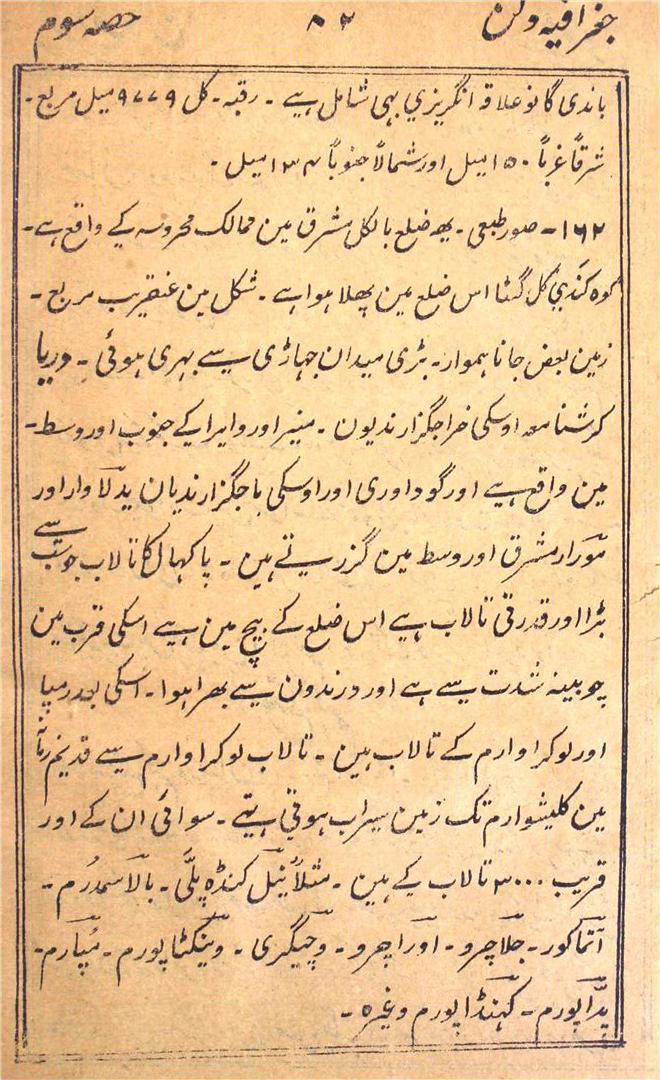 جغرافیہ دکن ۸۲ حصہ سوم
باندی گانو علاقہ انگریزی بہی شامل ہیے ۔ رقبہ ۔ کل ۹۷۷۹ میل مربع ۔
شرقاً غرباً ۱۵۰ میل اور شمالاً جنوباً ۱۳۴ میل ۔
۱۶۲ ۔ صورطبعی ۔ یھ ضلع بالکل مشرق مین ممالک محروسہ کے واقع ہے ۔
کوہ کندی کل گٹا اس ضلع مین پھلا ہوا ہے ۔ شکل مین عنقریب مربع ۔
زمین بعض جا نا ہموار ۔ بڑی میدان جہاڑی سے بہری ہوئی ۔ دریا
کرشنا معہ اوسکی خراجگزار ندیون ۔ منیر اور وایرا کے جنوب اور وسط ۔
مین واقع ہیے اور گوداوری اور اوسکی باجگزار ندیان یدلاوار اور
مورار مشرق اور وسط مین گزریتے ہین ۔ پاکہال کا تالاب جو سب سے
بڑا اور قدرتی تالاب ہیے اس ضلع کے بیچ مین ہیے اسکی قرب مین
چوبینہ شدت سے ہے اور درندون سے بھرا ہوا ۔ اسکی بعد رمپا
اور لوکراوارم کے تالاب ہین ۔ تالاب لوکراوارم سے قدیم زمانہ
مین کلیشوارم تک زمین سیراب ہوتی تہے ۔ سوائی ان کے اور
قریب ۳۰۰۰ تالاب کے ہین ۔ مثلاً نیل کنڈہ پلّی ۔ بالاسمدرُم ۔
آتماکور ۔ جلّاچرو ۔ اوراچرو ۔ وچیگری ۔ وینکٹاپورم ۔ مُپّارم ۔
پدّاپورم ۔ کہنڈاپورم وغیرہ ۔